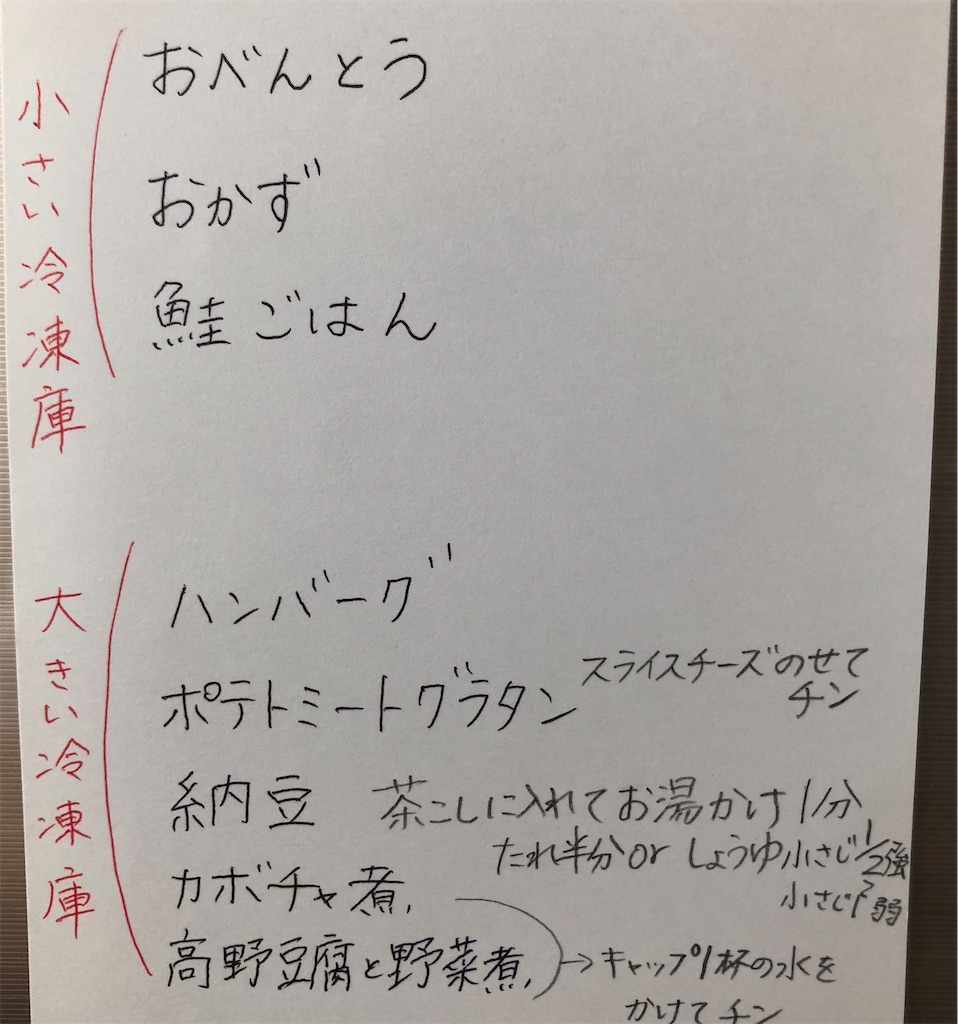 小さい冷凍庫
おべんとう
おかず
鮭ごはん
大きい冷凍庫
ハンバーグ
ポテトミートグラタン スライスチーズのせて
チン
納豆 茶こしに入れてお湯かけ1分
たれ半分or しょうゆ小さじ1/2強
小さじ1弱
カボチャ煮
高野豆腐と野菜煮 →キャップ1杯の水を
かけてチン